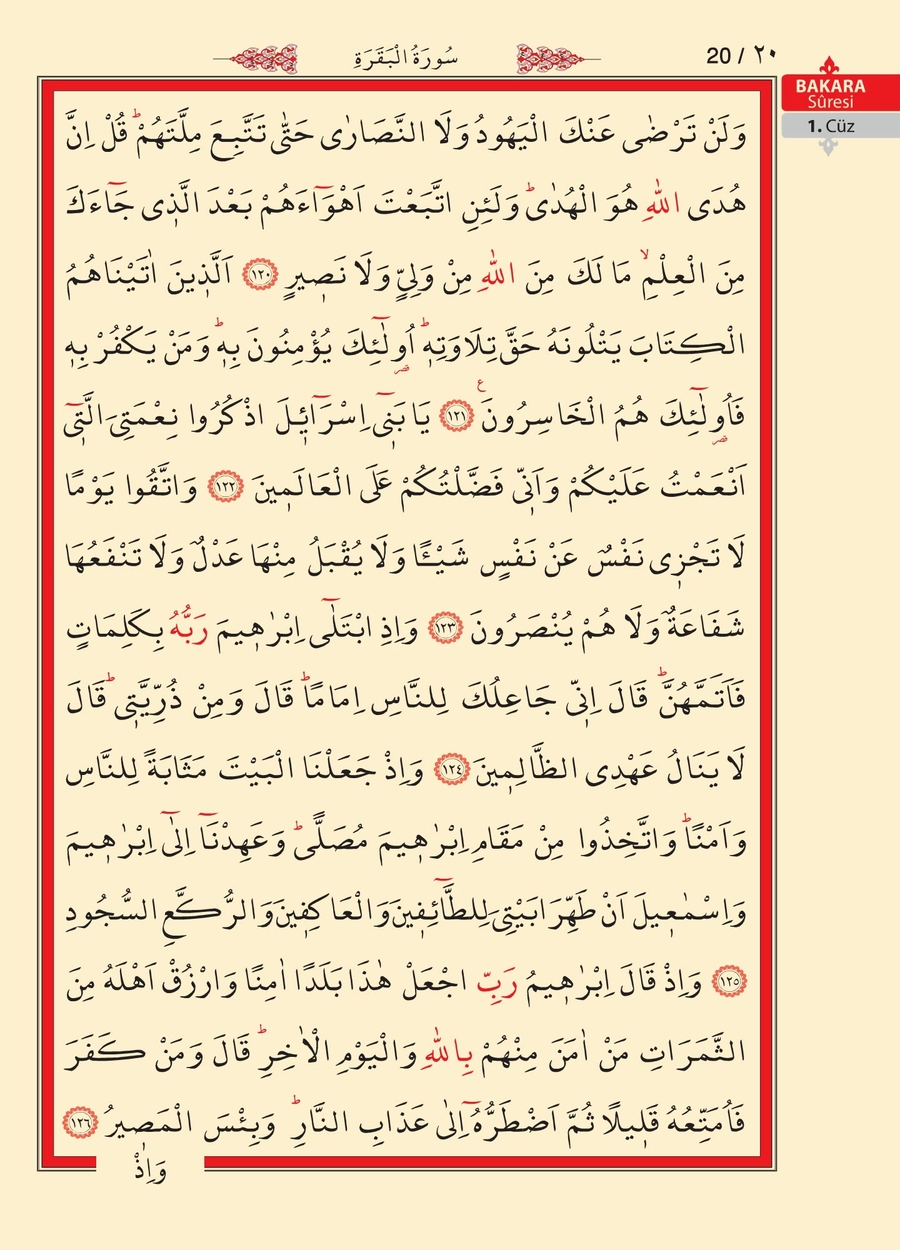 سُورَةُ الْبَقَرَةِ
20 / ٢٠
BAKARA
Sûresi
1. Cüz
وَلَنْ تَرْضٰى عَنْكَ الْيَهُودُ وَلَا النَّصَارٰى حَتّٰى تَتَّبِعَ مِلَّتَهُمْۜ قُلْ اِنَّ
هُدَى اللّٰهِ هُوَ الْهُدٰىۜ وَلَئِنِ اتَّبَعْتَ اَهْوَٓاءَهُمْ بَعْدَ الَّذ۪ي جَٓاءَكَ
مِنَ الْعِلْمِۙ مَا لَكَ مِنَ اللّٰهِ مِنْ وَلِيٍّ وَلَا نَص۪يرٍ ﴿١٢٠﴾ اَلَّذ۪ينَ اٰتَيْنَاهُمُ
الْكِتَابَ يَتْلُونَهُ حَقَّ تِلَاوَتِه۪ۜ اُو۬لٰٓئِكَ يُؤْمِنُونَ بِه۪ۜ وَمَنْ يَكْفُرْ بِه۪
فَاُو۬لٰٓئِكَ هُمُ الْخَاسِرُونَ۟ ﴿١٢١﴾ يَا بَن۪ٓي اِسْرَٓائ۪لَ اذْكُرُوا نِعْمَتِيَ الَّت۪ٓي
اَنْعَمْتُ عَلَيْكُمْ وَاَنّ۪ي فَضَّلْتُكُمْ عَلَى الْعَالَم۪ينَ ﴿١٢٢﴾ وَاتَّقُوا يَوْمًا
لَا تَجْز۪ي نَفْسٌ عَنْ نَفْسٍ شَيْـًٔا وَلَا يُقْبَلُ مِنْهَا عَدْلٌ وَلَا تَنْفَعُهَا
شَفَاعَةٌ وَلَا هُمْ يُنْصَرُونَ ﴿١٢٣﴾ وَاِذِ ابْتَلٰٓى اِبْرٰه۪يمَ رَبُّهُ بِكَلِمَاتٍ
فَاَتَمَّهُنَّۜ قَالَ اِنّ۪ي جَاعِلُكَ لِلنَّاسِ اِمَامًاۜ قَالَ وَمِنْ ذُرِّيَّت۪يۜ قَالَ
لَا يَنَالُ عَهْدِي الظَّالِم۪ينَ ﴿١٢٤﴾ وَاِذْ جَعَلْنَا الْبَيْتَ مَثَابَةً لِلنَّاسِ
وَاَمْنًاۜ وَاتَّخِذُوا مِنْ مَقَامِ اِبْرٰه۪يمَ مُصَلًّىۜ وَعَهِدْنَٓا اِلٰٓى اِبْرٰه۪يمَ
وَاِسْمٰع۪يلَ اَنْ طَهِّرَا بَيْتِيَ لِلطَّٓائِف۪ينَ وَالْعَاكِف۪ينَ وَالرُّكَّعِ السُّجُودِ
﴿١٢٥﴾ وَاِذْ قَالَ اِبْرٰه۪يمُ رَبِّ اجْعَلْ هٰذَا بَلَدًا اٰمِنًا وَارْزُقْ اَهْلَهُ مِنَ
الثَّمَرَاتِ مَنْ اٰمَنَ مِنْهُمْ بِاللّٰهِ وَالْيَوْمِ الْاٰخِرِۜ قَالَ وَمَنْ كَفَرَ
فَاُمَتِّعُهُ قَل۪يلًا ثُمَّ اَضْطَرُّهُٓ اِلٰى عَذَابِ النَّارِۜ وَبِئْسَ الْمَص۪يرُ ﴿١٢٦﴾
وَاِذْ